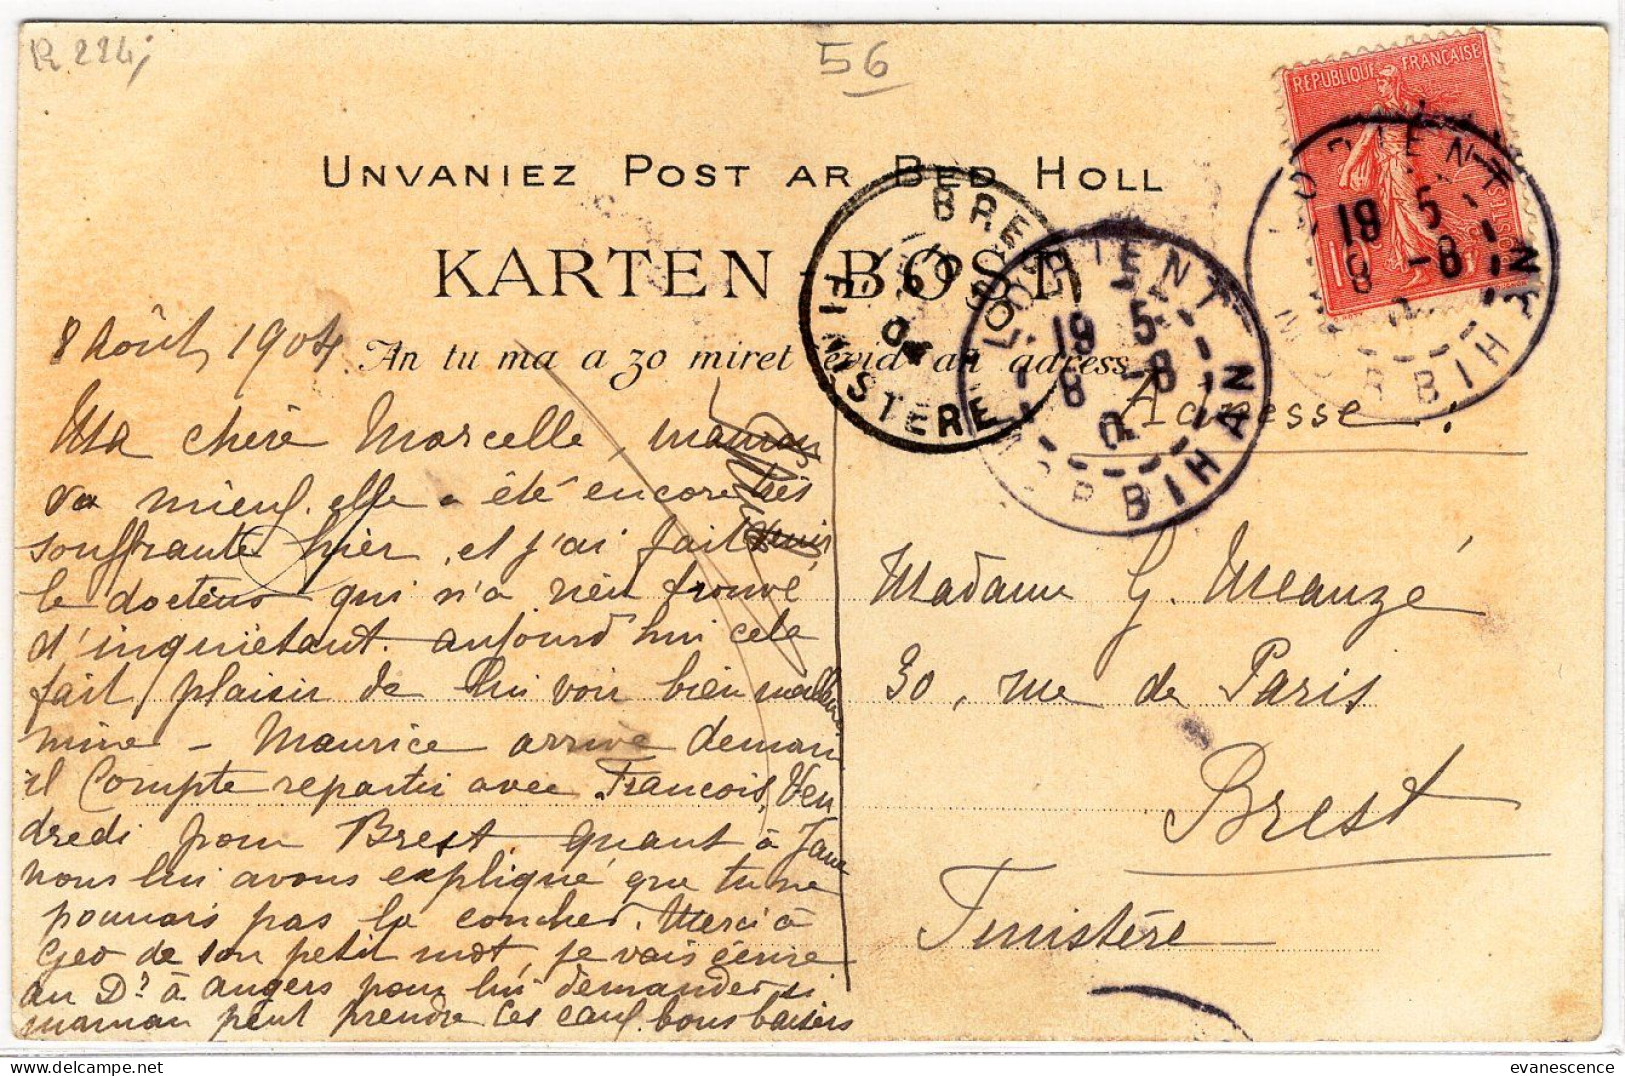 R 224
56
RÉPUBLIQUE FRANÇAISE
POSTES
UNVANIEZ POST AR BED HOLL
KARTEN-BOST
An tu ma a zo miret evid an adress
BREST
FINISTERE
LORIENT
MORBIHAN
19 5
8 -8
04
LORIENT
MORBIHAN
19 5
8 -8
Adresse :
8 Août 1904
Ma chère Marcelle, maman
va mieux. elle a été encore très
souffrante hier, et j'ai fait venir
le docteur qui n'a rien trouvé
d'inquiétant. aujourd'hui cela
fait plaisir de lui voir bien meilleure
mine - Maurice arrive demain
il compte repartir avec François, Ven
dredi pour Brest. quant à Jane
nous lui avons expliqué que tu ne
pouvais pas la coucher. Merci à
Geo de son petit mot, je vais écrire
au Dr à angers pour lui demander si
maman peut prendre les eaux. bons baisers
Madame G. Meauzé
30, rue de Paris
Brest
Finistère
evanescence